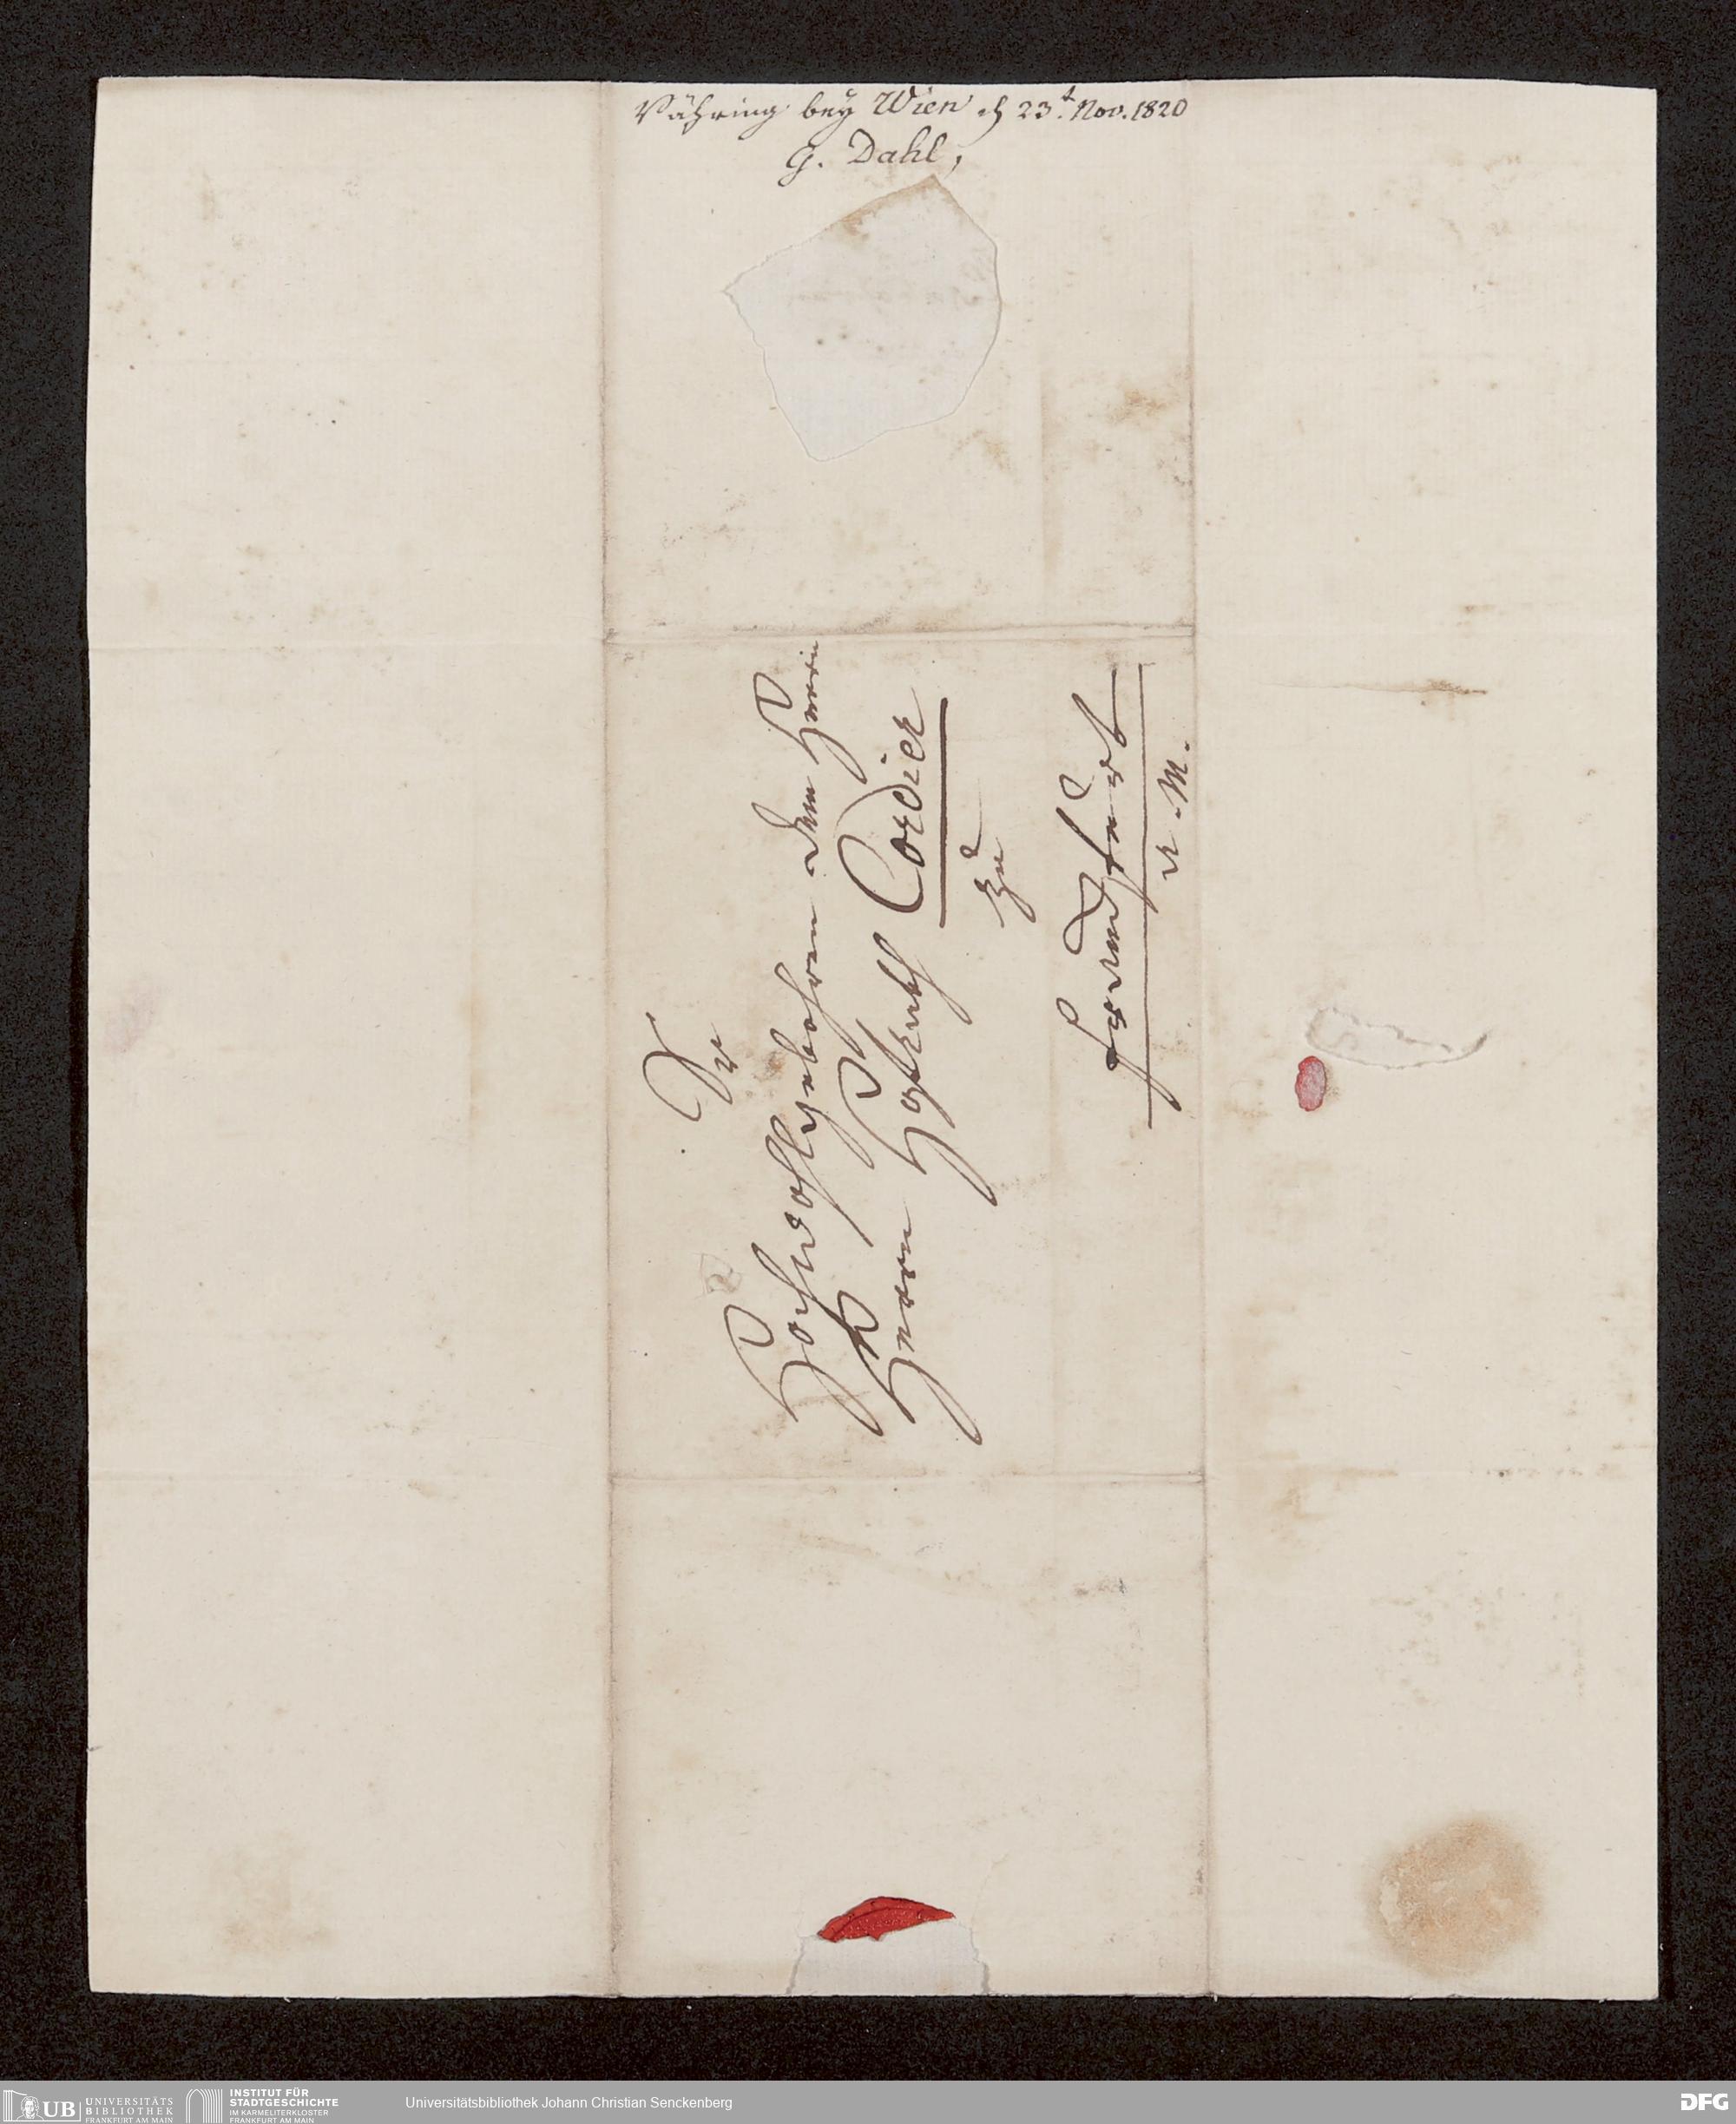 Währing bey Wien d 23t. Nov. 1820
G. Dahl,
Sr
Hochwohlgebohren dem Herrn
Herrn Hofrath Cordier
zu
Franckfurt
a. M.
UB UNIVERSITÄTS BIBLIOTHEK FRANKFURT AM MAIN
INSTITUT FÜR STADTGESCHICHTE IM KARMELITERKLOSTER FRANKFURT AM MAIN
Universitätsbibliothek Johann Christian Senckenberg
DFG